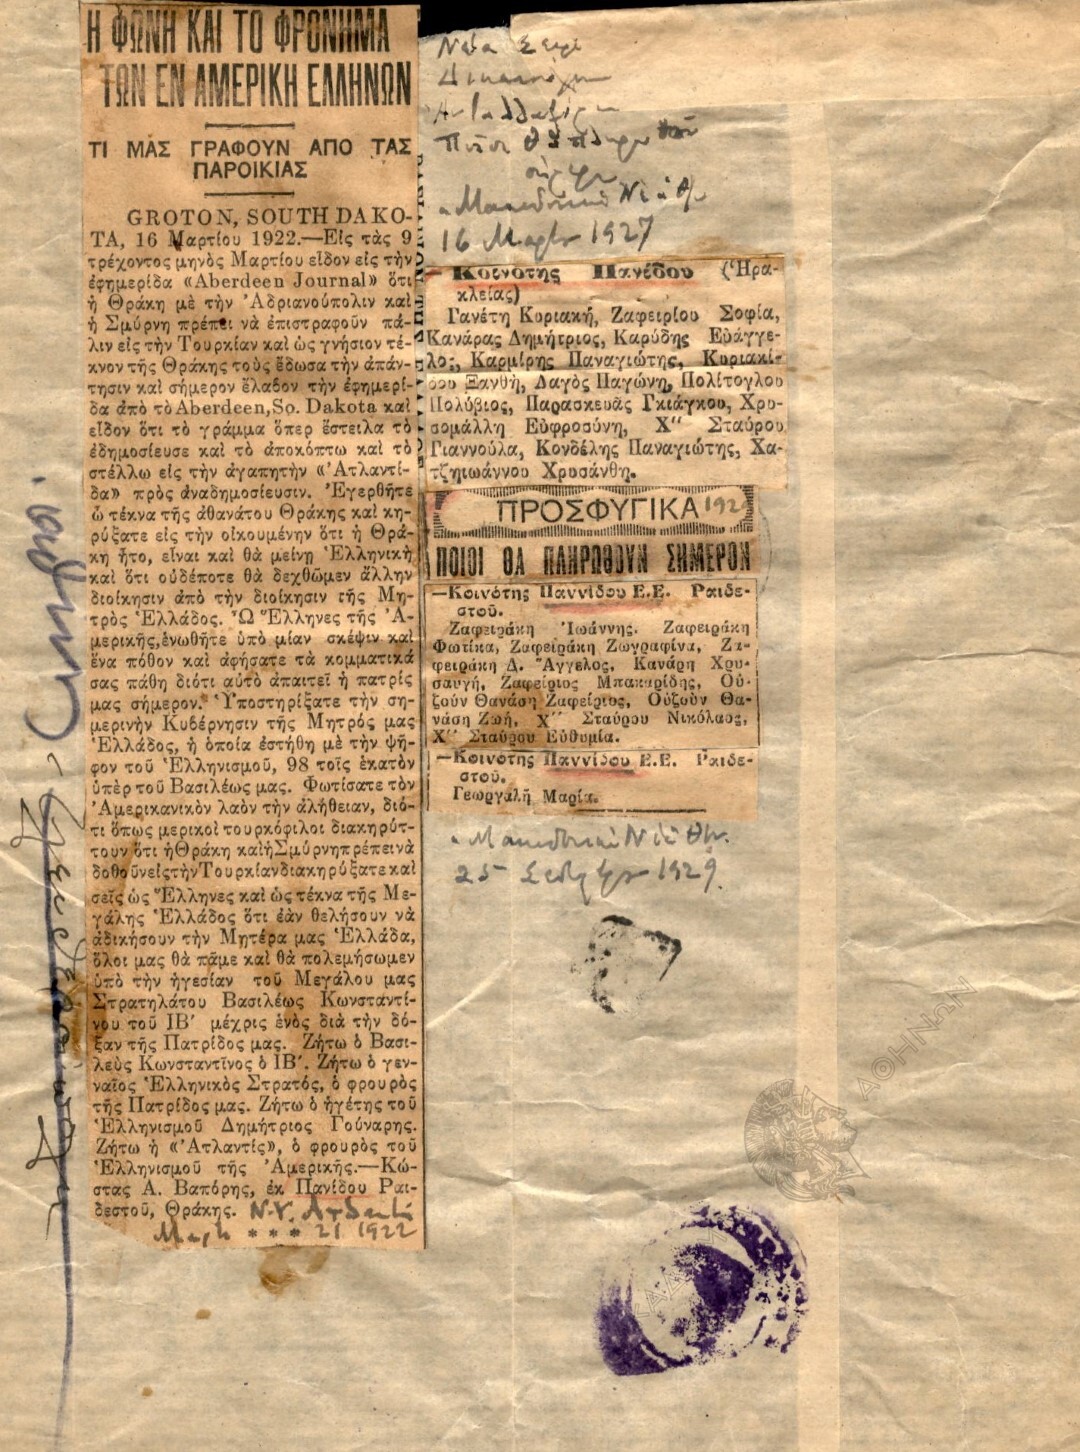 Η ΦΩΝΗ ΚΑΙ ΤΟ ΦΡΟΝΗΜΑ
ΤΩΝ ΕΝ ΑΜΕΡΙΚΗ ΕΛΛΗΝΩΝ
ΤΙ ΜΑΣ ΓΡΑΦΟΥΝ ΑΠΟ ΤΑΣ
ΠΑΡΟΙΚΙΑΣ
GROTON, SOUTH DAKO-
TA, 16 Μαρτίου 1922.—Εἰς τὰς 9
τρέχοντος μηνὸς Μαρτίου εἶδον εἰς τὴν
ἐφημερίδα «Aberdeen Journal» ὅτι
ἡ Θράκη μὲ τὴν Ἀδριανούπολιν καὶ
ἡ Σμύρνη πρέπει νὰ ἐπιστραφοῦν πά-
λιν εἰς τὴν Τουρκίαν καὶ ὡς γνήσιον τέ-
κνον τῆς Θράκης τοὺς ἔδωσα τὴν ἀπάν-
τησιν καὶ σήμερον ἔλαβον τὴν ἐφημερί-
δα ἀπὸ τὸ Aberdeen, So. Dakota καὶ
εἶδον ὅτι τὸ γράμμα ὅπερ ἔστειλα τὸ
ἐδημοσίευσε καὶ τὸ ἀποκόπτω καὶ τὸ
στέλλω εἰς τὴν ἀγαπητὴν «Ἀτλαντί-
δα» πρὸς ἀναδημοσίευσιν. Ἐγερθῆτε
ὦ τέκνα τῆς ἀθανάτου Θράκης καὶ κη-
ρύξατε εἰς τὴν οἰκουμένην ὅτι ἡ Θρά-
κη ἦτο, εἶναι καὶ θὰ μείνῃ Ἑλληνικὴ
καὶ ὅτι οὐδέποτε θὰ δεχθῶμεν ἄλλην
διοίκησιν ἀπὸ τὴν διοίκησιν τῆς Μη-
τρὸς Ἑλλάδος. Ὦ Ἕλληνες τῆς Ἀ-
μερικῆς, ἑνωθῆτε ὑπὸ μίαν σκέψιν καὶ
ἕνα πόθον καὶ ἀφήσατε τὰ κομματικά
σας πάθη διότι αὐτὸ ἀπαιτεῖ ἡ πατρίς
μας σήμερον. Ὑποστηρίξατε τὴν ση-
μερινὴν Κυβέρνησιν τῆς Μητρός μας
Ἑλλάδος, ἡ ὁποία ἐστήθη μὲ τὴν ψῆ-
φον τοῦ Ἑλληνισμοῦ, 98 τοῖς ἑκατὸν
ὑπὲρ τοῦ Βασιλέως μας. Φωτίσατε τὸν
Ἀμερικανικὸν λαὸν τὴν ἀλήθειαν, διό-
τι ὅπως μερικοὶ τουρκόφιλοι διακηρύτ-
τουν ὅτι ἡ Θράκη καὶ ἡ Σμύρνη πρέπει νὰ
δοθοῦν εἰς τὴν Τουρκίαν διακηρύξατε καὶ
σεῖς ὡς Ἕλληνες καὶ ὡς τέκνα τῆς Με-
γάλης Ἑλλάδος ὅτι ἐὰν θελήσουν νὰ
ἀδικήσουν τὴν Μητέρα μας Ἑλλάδα,
ὅλοι μας θὰ πᾶμε καὶ θὰ πολεμήσωμεν
ὑπὸ τὴν ἡγεσίαν τοῦ Μεγάλου μας
Στρατηλάτου Βασιλέως Κωνσταντί-
νου τοῦ ΙΒ′ μέχρις ἑνὸς διὰ τὴν δό-
ξαν τῆς Πατρίδος μας. Ζήτω ὁ Βασι-
λεὺς Κωνσταντῖνος ὁ ΙΒ′. Ζήτω ὁ γεν-
ναῖος Ἑλληνικὸς Στρατός, ὁ φρουρὸς
τῆς Πατρίδος μας. Ζήτω ὁ ἡγέτης τοῦ
Ἑλληνισμοῦ Δημήτριος Γούναρης.
Ζήτω ἡ «Ἀτλαντίς», ὁ φρουρὸς τοῦ
Ἑλληνισμοῦ τῆς Ἀμερικῆς.—Κώ-
στας Α. Βαπόρης, ἐκ Πανίδου Ραι-
δεστοῦ, Θράκης. N.Y.
* * * 21 1922
Νέα
Πῶσοι θὰ
«Μακεδονικὰ Νέα» Θ/
16 Μαρτ 1927
— Κοινότης Πανίδου (Ἡρα-
κλείας)
Γανέτη Κυριακή, Ζαφειρίου Σοφία,
Κανάρας Δημήτριος, Καρύδης Εὐάγγε-
λος, Καρμίρης Παναγιώτης, Κυριακί-
δου Ξανθή, Δαγὸς Παγώνη, Πολίτογλου
Πολύβιος, Παρασκευᾶς Γκιάγκου, Χρυ-
σομάλλη Εὐφροσύνη, Χ″ Σταύρου
Γιαννούλα, Κονδέλης Παναγιώτης, Χα-
τζηιωάννου Χρυσάνθη.
ΠΡΟΣΦΥΓΙΚΑ 192
ΠΟΙΟΙ ΘΑ ΠΛΗΡΩΘΟΥΝ ΣΗΜΕΡΟΝ
—Κοινότης Παννίδου Ε.Ε. Ραιδε-
στοῦ.
Ζαφειράκη Ἰωάννης. Ζαφειράκη
Φωτίκα, Ζαφειράκη Ζωγραφίνα, Ζα-
φειράκη Δ. Ἄγγελος, Κανάρη Χρυ-
σαυγή, Ζαφείριος Μπακαρίδης, Οὐ-
ζοὺν Θανάση Ζαφείριος, Οὐζοὺν Θα-
νάση Ζωή, Χ″ Σταύρου Νικόλαος,
Χ″ Σταύρου Εὐθυμία.
—Κοινότης Παννίδου Ε.Ε. Ραιδε-
στοῦ.
Γεωργαλῆ Μαρία.
«Μακεδονικὰ Νέα» Θ
25 1929.
ΑΘΗΝΩΝ